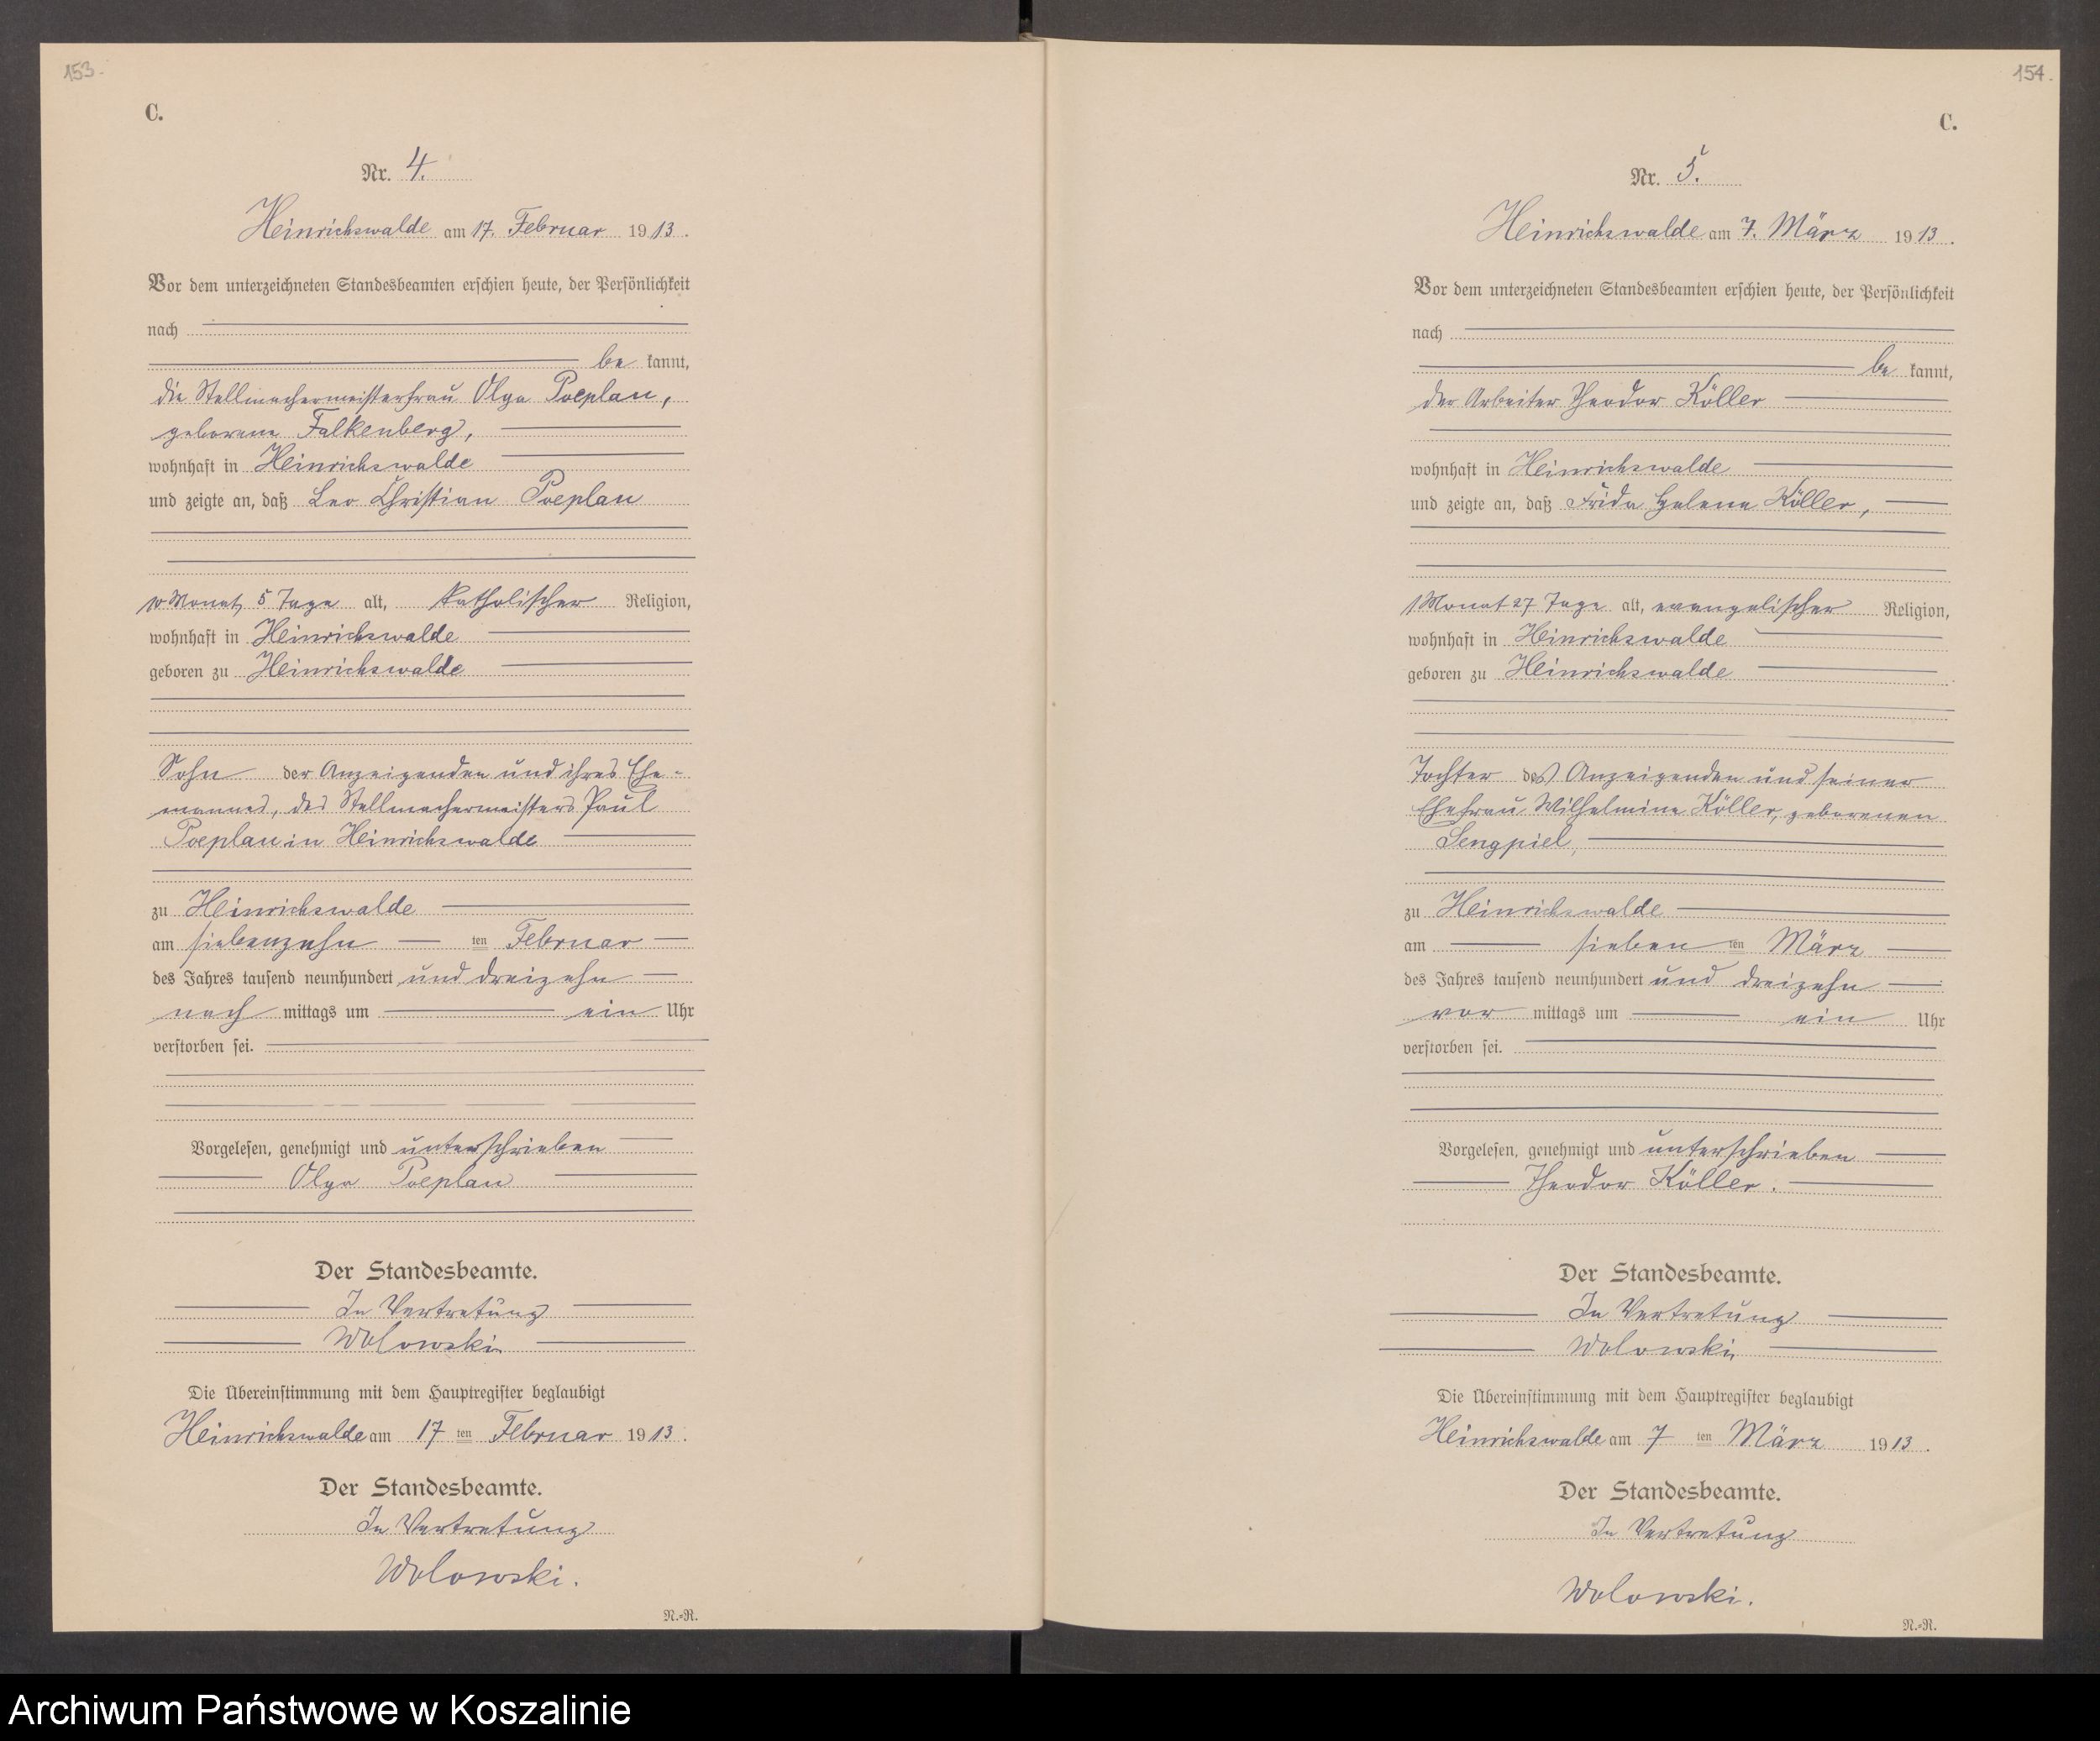 153.
C.
Nr. 4.
Heinrichswalde am 17. Februar 1913.
Vor dem unterzeichneten Standesbeamten erschien heute, der Persönlichkeit
nach
be kannt,
die Stellmachermeisterfrau Olga Poeplau,
geborene Falkenberg,
wohnhaft in Heinrichswalde
und zeigte an, daß Leo Christian Poeplau
10 Monat, 5 Tage alt, katholischer Religion,
wohnhaft in Heinrichswalde
geboren zu Heinrichswalde
Sohn der Anzeigenden und ihres Ehe-
mannes, des Stellmachermeisters Paul
Poeplau in Heinrichswalde
zu Heinrichswalde
am siebenzehn ten Februar
des Jahres tausend neunhundert und dreizehn
nach mittags um ein Uhr
verstorben sei.
Vorgelesen, genehmigt und unterschrieben
Olga Poeplau
Der Standesbeamte.
In Vertretung
Wolowski
Die Übereinstimmung mit dem Hauptregister beglaubigt
Heinrichswalde am 17 ten Februar 1913.
Der Standesbeamte.
In Vertretung
Wolowski.
N.=R.
154.
C.
Nr. 5.
Heinrichswalde am 7. März 1913.
Vor dem unterzeichneten Standesbeamten erschien heute, der Persönlichkeit
nach
be kannt,
der Arbeiter Theodor Köller
wohnhaft in Heinrichswalde
und zeigte an, daß Frida Helene Köller,
1 Monat 27 Tage alt, evangelischer Religion,
wohnhaft in Heinrichswalde
geboren zu Heinrichswalde
Tochter des Anzeigenden und seiner
Ehefrau Wilhelmine Köller, geborenen
Sengpiel,
zu Heinrichswalde
am sieben ten März
des Jahres tausend neunhundert und dreizehn
vor mittags um ein Uhr
verstorben sei.
Vorgelesen, genehmigt und unterschrieben
Theodor Köller.
Der Standesbeamte.
In Vertretung
Wolowski
Die Übereinstimmung mit dem Hauptregister beglaubigt
Heinrichswalde am 7 ten März 1913.
Der Standesbeamte.
In Vertretung
Wolowski.
N.=R.
Archiwum Państwowe w Koszalinie